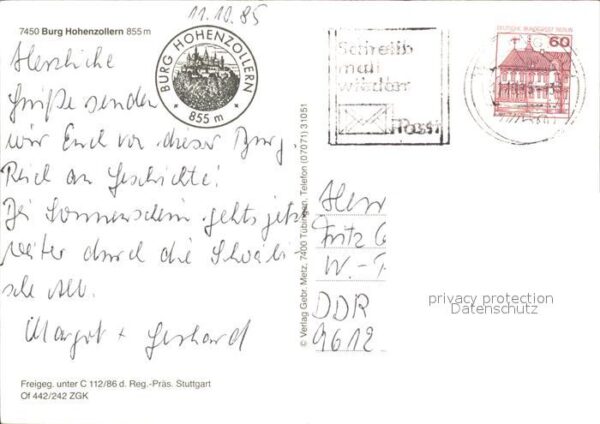 11.10.85
7450 Burg Hohenzollern 855 m
BURG HOHENZOLLERN
855 m
Herzliche
Grüße senden
wir Euch von dieser Burg.
Reich an Geschichte!
Bei Sonnenschein gehts jetzt
weiter durch die Schwäbi-
sche Alb.
Margot + Gerhard
Freigeg. unter C 112/86 d. Reg.-Präs. Stuttgart
Of 442/242 ZGK
© Verlag Gebr. Metz, 7400 Tübingen, Telefon (07071) 31051
Schreib
mal
wieder
Post
DEUTSCHE BUNDESPOST BERLIN
60
Herr
Fritz G
W.-P
DDR
9612
privacy protection
Datenschutz